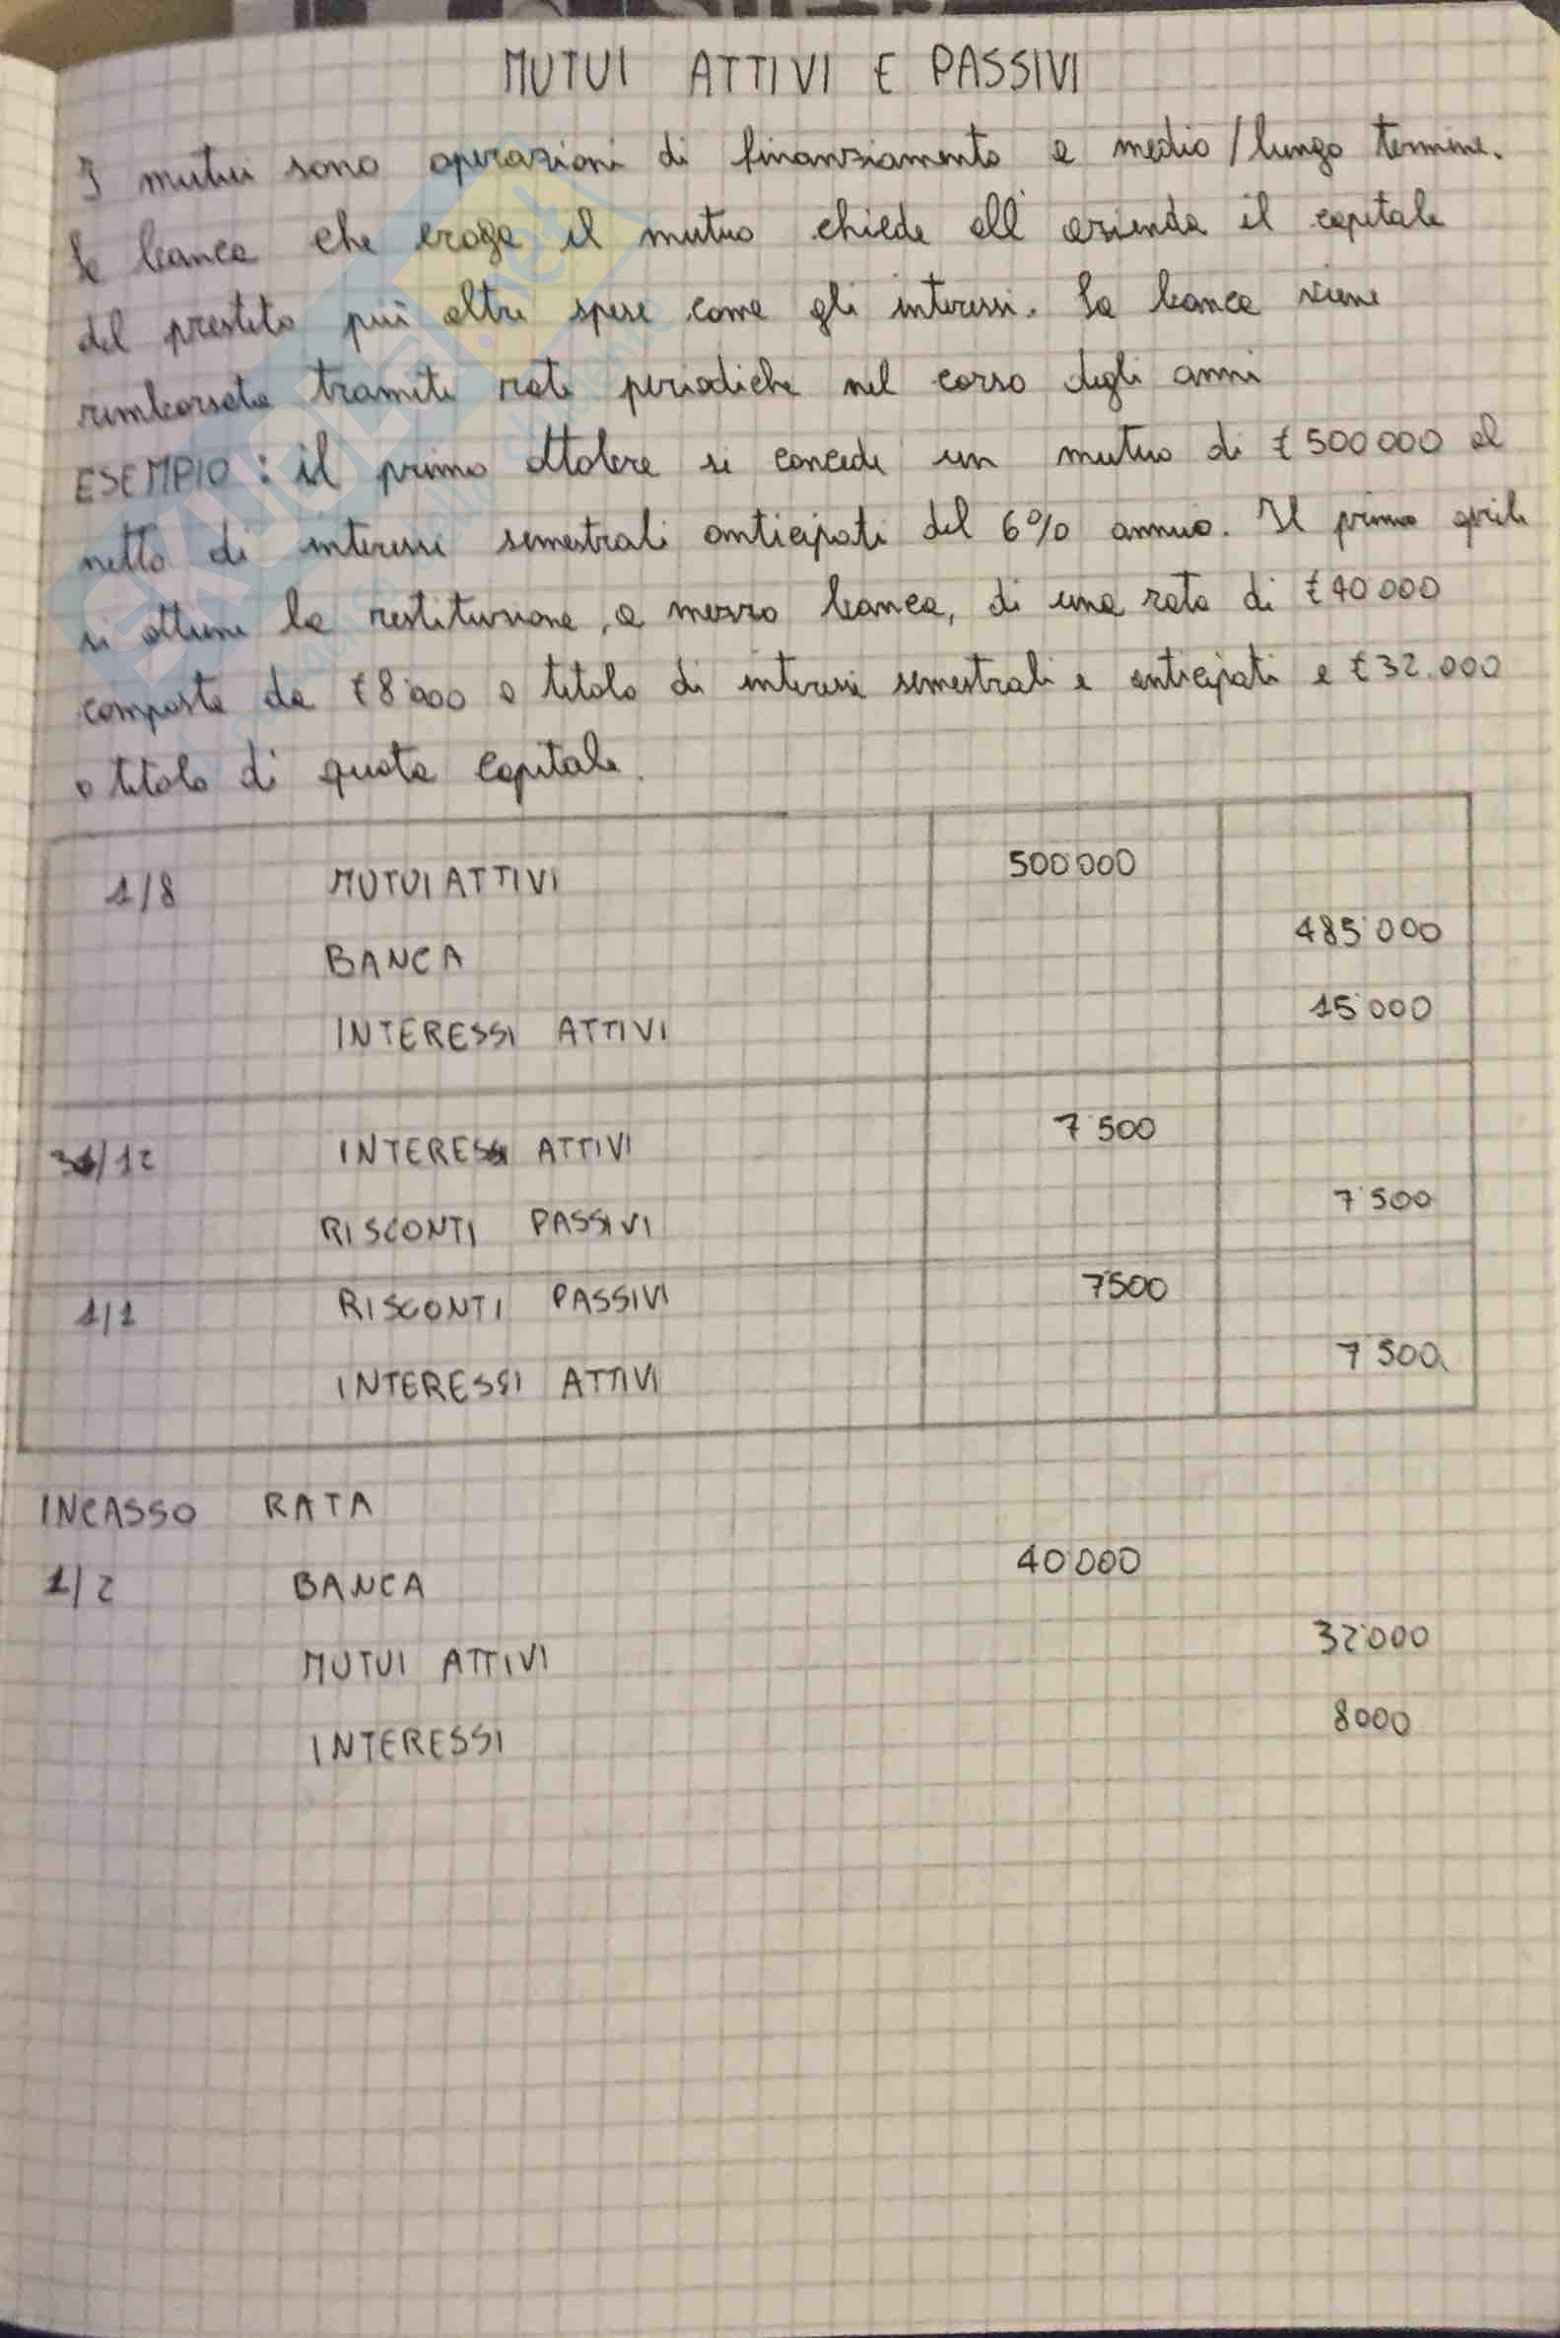 MUTUI ATTIVI E PASSIVI
I mutui sono operazioni di finanziamento a medio/lungo termine.
la banca che eroga il mutuo chiede all'azienda il capitale
del prestito più altre spese come gli interessi. La banca viene
rimborsata tramite rate periodiche nel corso degli anni
ESEMPIO: il primo ottobre si concede un mutuo di € 500 000 al
netto di interessi semestrali anticipati del 6% annuo. Il primo aprile
si ottiene la restituzione, a mezzo banca, di una rata di € 40 000
composta da € 8'000 a titolo di interessi semestrali e anticipati e € 32.000
a titolo di quota capitale.
1/8 MUTUI ATTIVI 500'000
BANCA 485'000
INTERESSI ATTIVI 15'000
31/12 INTERESSI ATTIVI 7'500
RISCONTI PASSIVI 7'500
1/1 RISCONTI PASSIVI 7'500
INTERESSI ATTIVI 7'500
INCASSO RATA
1/2 BANCA 40'000
MUTUI ATTIVI 32'000
INTERESSI 8000